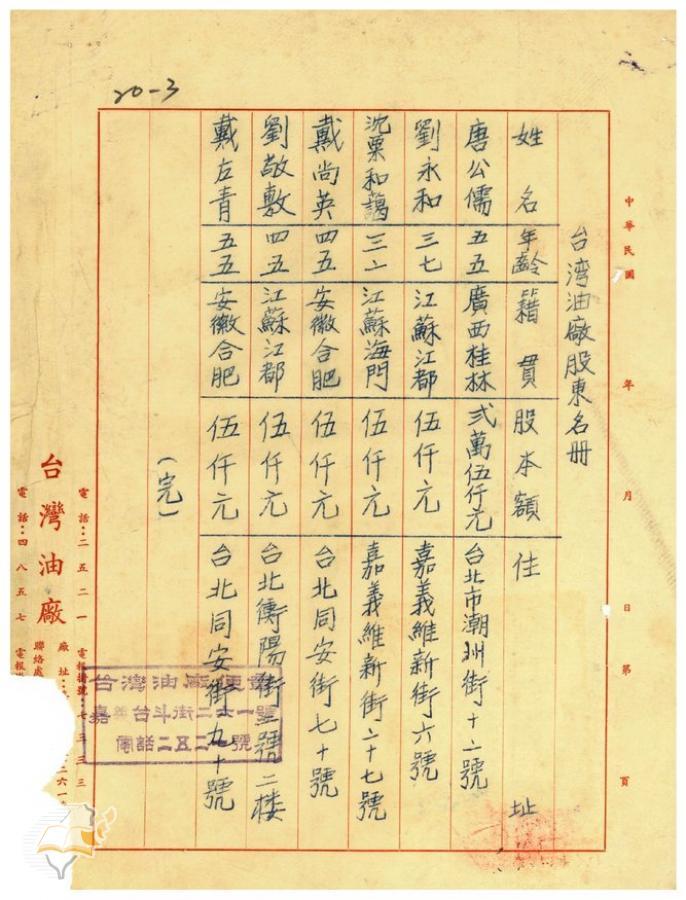 20-3
中華民國 年 月 日 第 頁
台湾油廠股東名冊
姓名 年齡 籍貫 股本額 住址
唐公儒 五五 廣西桂林 弍萬伍仟元 台北市潮州街十二號
劉永和 三七 江蘇江都 伍仟元 嘉義維新街六號
沈栗和藹 三二 江蘇海門 伍仟元 嘉義維新街二十七號
戴尚英 四五 安徽合肥 伍仟元 台北同安街七十號
劉敬敷 四五 江蘇江都 伍仟元 台北衡陽街三號二楼
戴左青 五五 安徽合肥 伍仟元 台北同安街九十號
(完)
台灣油廠
嘉義台斗街二六一號
電話二五二一號
電話:二五二一 電報掛號:七三三三
台灣油廠
廠址:
聯絡處
電話:四八五七 電報掛